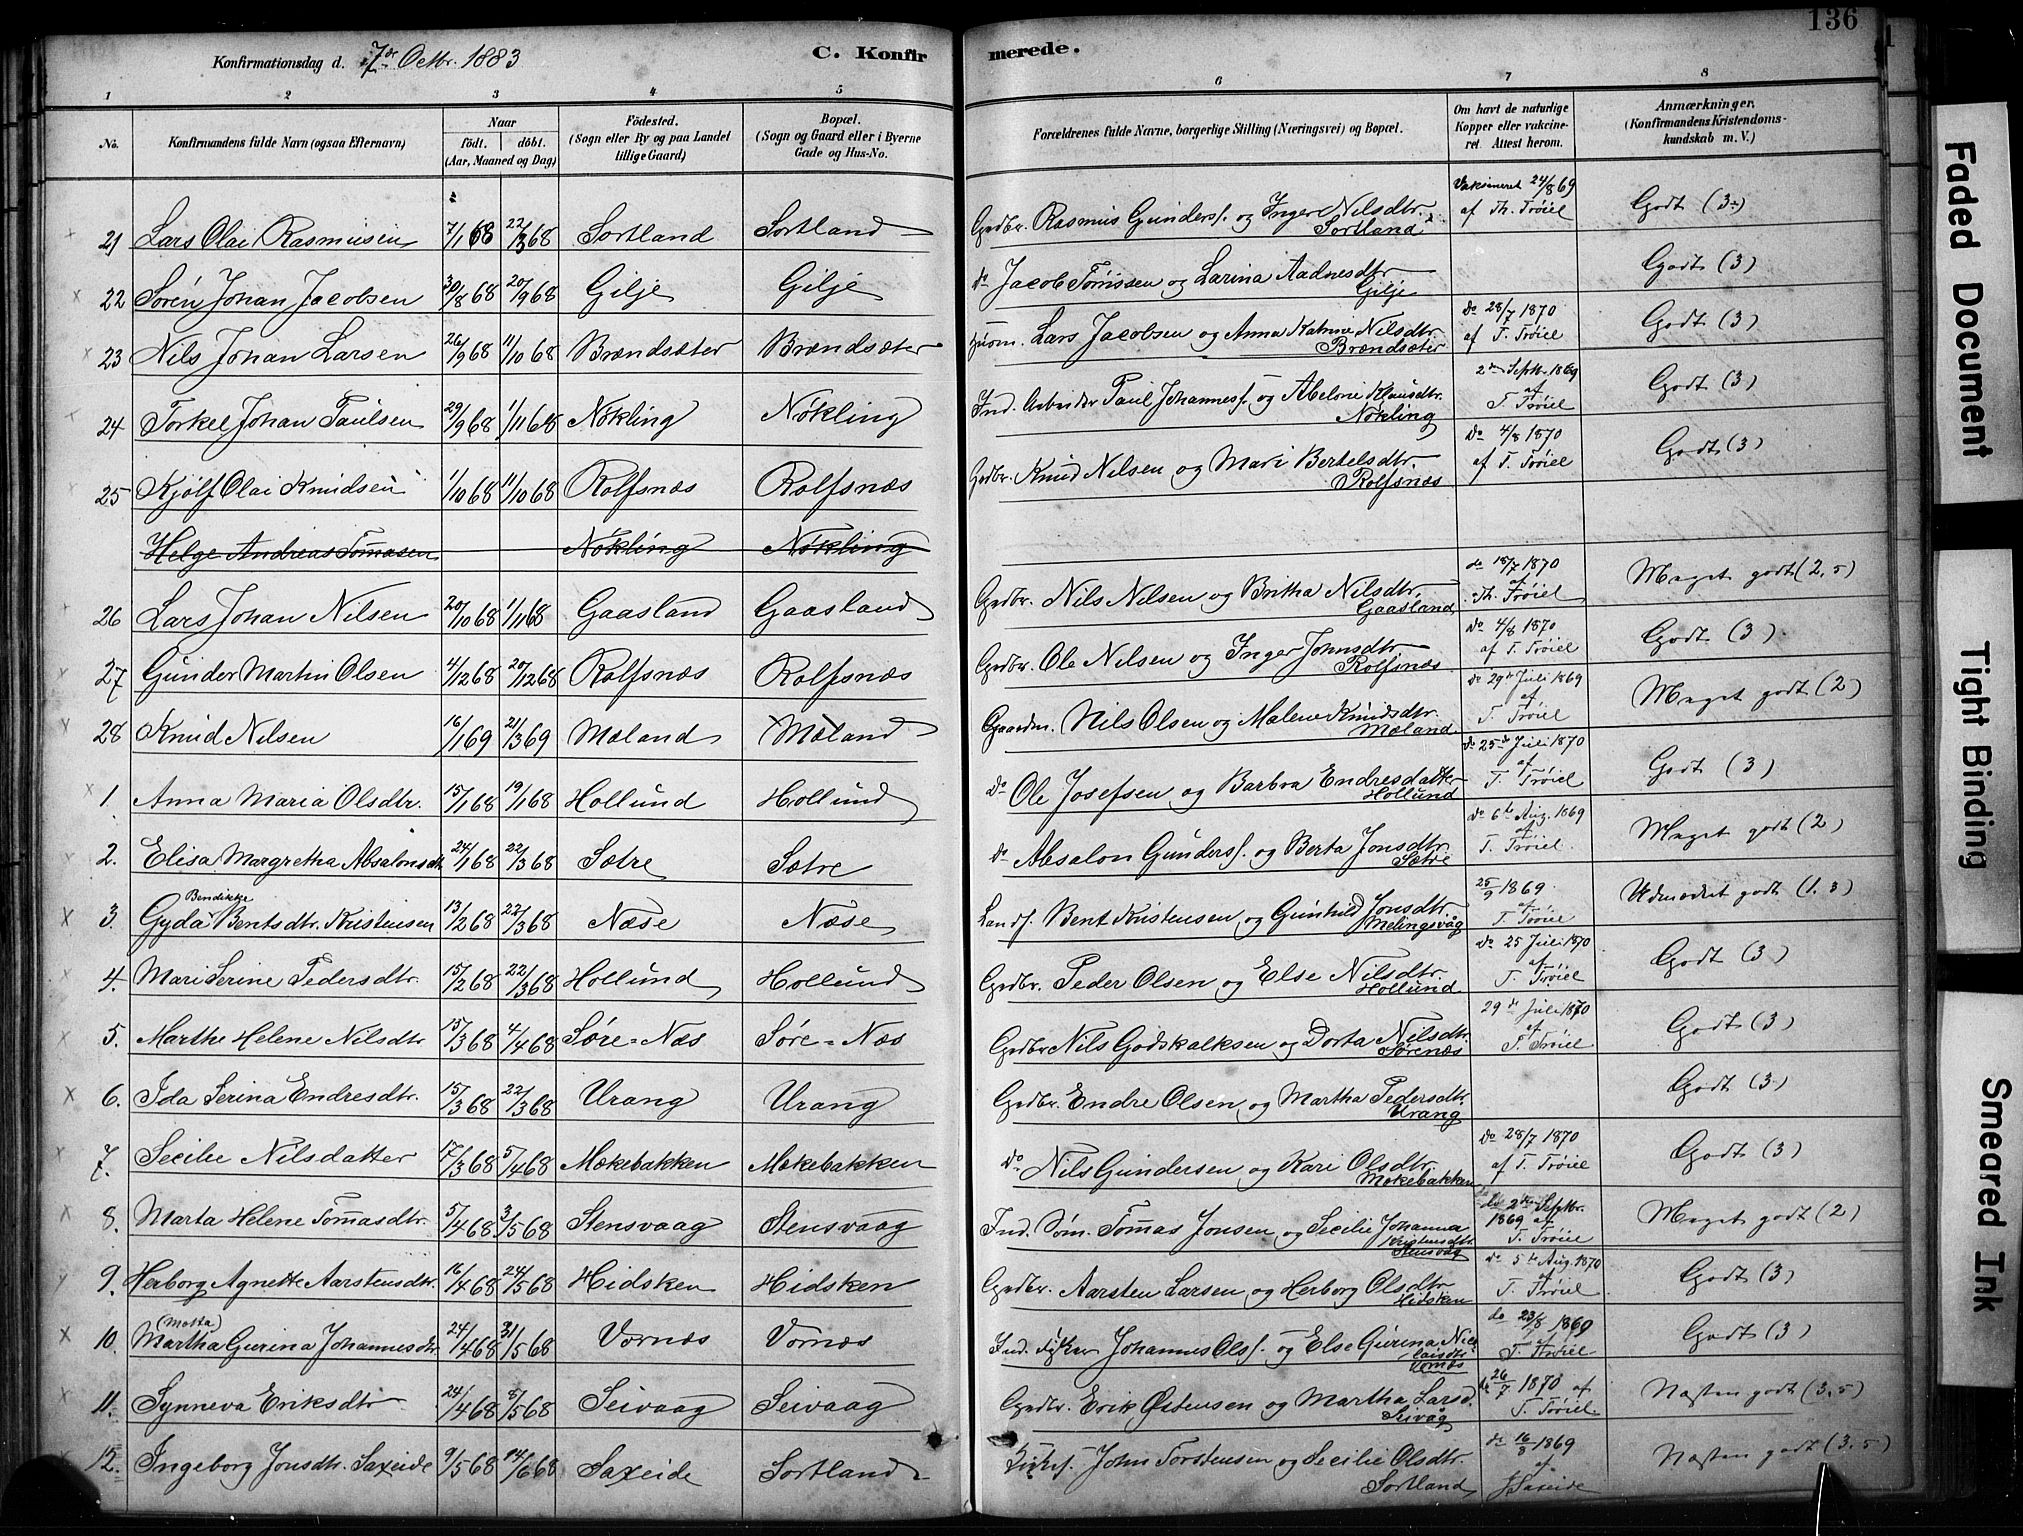 136
Konfirmationsdag d. 7de Octbr. 1883
C. Konfirmerede.
1 2 3 4 5 6 7 8
No. Konfirmandens fulde Navn (ogsaa Efternavn) Naar født. døbt. (Aar, Maaned og Dag) Fødested. (Sogn eller By og paa Landet tillige Gaard) Bopæl. (Sogn og Gaard eller i Byerne Gade og Hus-No. Forældrenes fulde Navne, borgerlige Stilling (Næringsvei) og Bopæl. Om havt de naturlige Kopper eller vakcineret. Attest herom. Anmærkninger. (Konfirmandens Kristendomskundskab m. V.)
21 Lars Olai Rasmusen 7/1 68 22/3 68 Sortland Sortland Grdbr. Rasmus Gunders. og Inger Nilsdtr. Sortland Vaksineret 24/8 69 af Th. Trøiel Godt (3)
22 Søren Johan Jacobsen 30/8 68 20/9 68 Gilje Gilje do Jacob Tømssen og Larina Aadnesdtr Gilje Godt (3)
23 Nils Johan Larsen 26/9 68 11/10 68 Brændsæter Brændsæter Husm. Lars Jacobsen og Anna Katrine Nilsdtr. Brændsæter do 28/7 1870 af T. Trøiel Godt (3)
24 Torkel Johan Paulsen 29/9 68 1/11 68 Nøkling Nøkling Ind. Arbeider Paul Johannes. og Abelone Klausdtr. Nøkling 2den Septbr. 1869 af T. Trøiel Godt (3)
25 Kjølf Olai Knudsen 1/10 68 11/10 68 Rolfsnæs Rolfsnæs Grdbr. Knud Nilsen og Mari Bertelsdtr. Rolfsnæs Do 4/8 1870 af T. Trøiel Godt (3)
Helge Andreas Tomasen Nøkling Nøkling
26 Lars Johan Nilsen 20/10 68 1/11 68 Gaasland Gaasland Grdbr. Nils Nilsen og Britha Nilsdtr. Gaasland do 18/7 1870 af Th. Trøiel Meget godt (2,5)
27 Gunder Martin Olsen 4/12 68 20/12 68 Rolfsnæs Rolfsnæs Grdbr. Ole Nilsen og Inger Johnsdtr Rolfsnæs do 4/8 1870 af T. Trøiel Godt (3)
28 Knud Nilsen 16/1 69 21/3 69 Mæland Mæland Gaardm. Nils Olsen og Malene Knudsdtr. Mæland do 29de Juli 1869 af T. Trøiel Meget godt (2)
1. Anna Maria Olsdtr. 15/1 68 19/1 68 Hollund Hollund do Ole Josefsen og Barbra Endresdatter Hollund do 25de Juli 1870 af T. Trøiel Godt (3)
2. Elisa Margretha Absalonsdtr 24/1 68 22/3 68 Sætre Sætre do Absalon Gunders. og Berta Jonsdtr. Sætre do 6te Aug. 1869 af T. Trøiel. Meget godt (2)
3. Gyda Bendikkje Bentsdtr. Kristensen 13/2 68 22/3 68 Næse Næse Landh. Bent Kristensen og Gunhild Jonsdtr. Melingsvåg 25/9 1869. af T. Trøiel Udmærket godt (1.3)
4. Mari Serine Pedersdtr. 15/2 68 22/3 68 Hollund Hollund Grdbr. Peder Olsen og Else Nilsdtr. Hollund do 25 Juli 1870 af T. Trøiel Godt (3)
5. Marthe Helene Nilsdtr 15/3 68 4/4 68 Søre=Næs Søre=Næs Grdbr Nils Godskalksen og Dorta Nilsdtr. Sørenæs 29de Juli 1870 af T. Trøiel Godt (3)
6. Ida Serina Endresdtr. 15/3 68 22/3 68 Urang Urang Grdbr. Endre Olsen og Martha Pedersdtr. Urang Godt (3)
7. Secilie Nilsdatter 17/3 68 5/4 68 Mækebakken Mækebakken do Nils Gundersen og Kari Olsdtr. Mækebakken do 28/7 1870 af T. Trøiel Godt (3)
8. Marta Helene Tomasdtr. 5/4 68 3/5 68 Stensvaag Stensvaag Ind. Søm. Tomas Jonsen og Secilie Johanna Kristensdtr. Stensvåg do 2den Septbr. 1869 af T. Trøiel Meget godt (2)
9. Herborg Agnette Aarstensdtr. 16/4 68 24/5 68 Hidsken Hidsken Grdbr. Aarsten Larsen og Herborg Olsdtr Hidsken do 5te Aug. 1870 af T. Trøiel Godt (3)
10. Martha (Motta) Gurina Johannesdtr. 24/4 68 31/5 68 Vornæs Vornæs Ind. Fisker Johannes Ols. og Else Gurina Nicolaisdtr Vornæs do 23/8 1869 af T. Trøiel Godt (3)
11. Synneva Eriksdtr 24/4 68 8/5 68 Seivaag Seivaag Grdbr. Erik Østensen og Martha Larsd. Seivåg do 26/7 1870 af T. Trøiel. Næsten godt (3,5)
12. Ingeborg Jonsdtr. Saxeide 9/5 68 14/6 68 Saxeide Sortland John Torstensen og Secilie Olsdtr. Sortland do 16/8 1869 af Saxeide Næsten godt (3,5)
Faded Document
Tight Binding
Smeared Ink